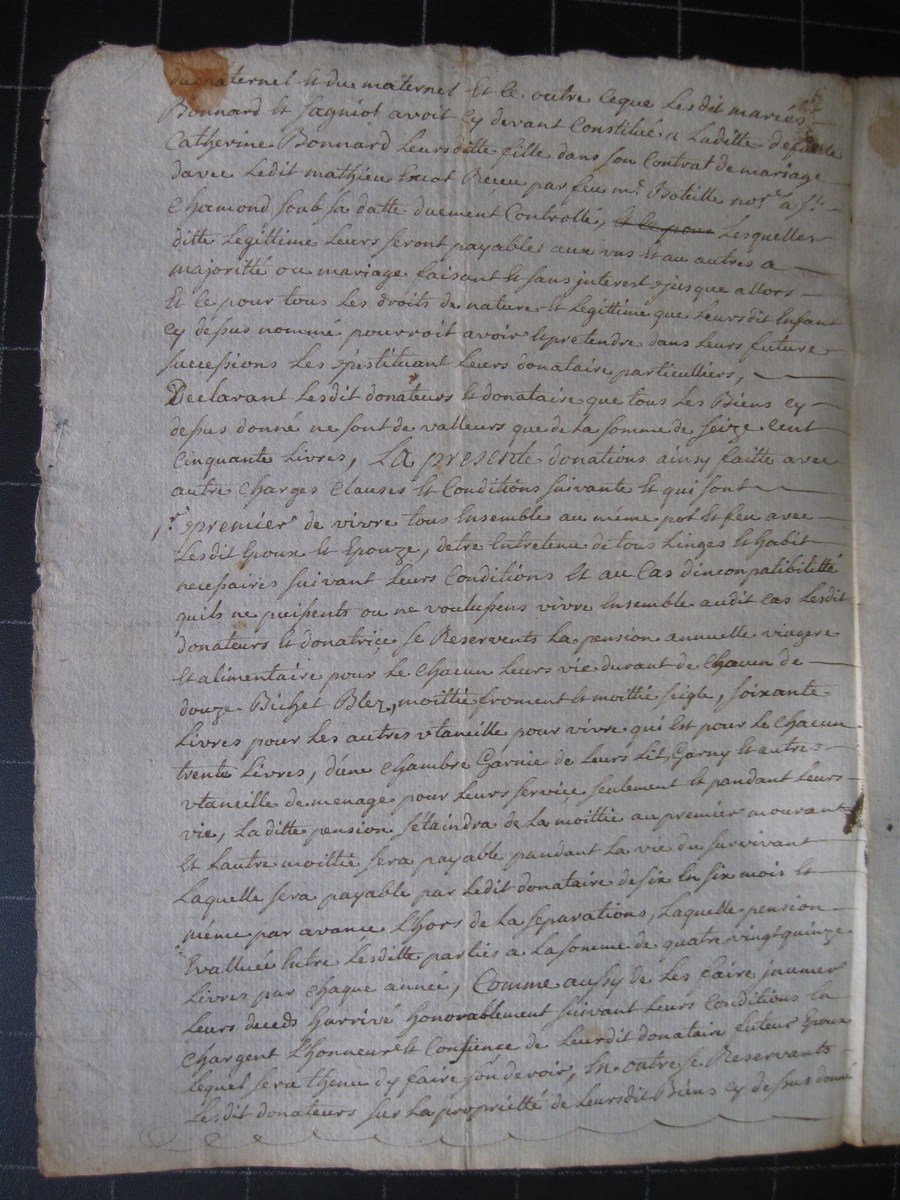 du paternel et du maternel Et ce outre ceque Lesdit mariés
Bonnard et Sagniol avoit Cy devant Constitué a Laditte defunte
Catherine Bonnard Leursditte fille dans son Contrat de mariage
davec Ledit mathieu Receu par feu mr. Bataille nore. a St.
Chamond soub sa datte duement Controllé, et ce pour Lesquelles
ditte Legittime Leurs seront payables aux uns et au autres a
majoritté ou mariage faisant et sans interest jusque allors
Et ce pour tous Les droits de nature et Legittime que Leursdit Enfant
Cy dessus nommé pourroit avoir et pretendre dans Leurs future
successions Les jnstituant Leurs donataire particulliers,
Declarant Lesdit donateurs et donataire que tous Les Biens cy
dessus donné ne sont de valleurs que de la somme de seize Cent
Cinquante Livres, La presente donations ainsy faitte avec
autre Charges Clauses et Conditions suivante Et qui sont
1r. premier de vivre tous Ensemble au même pot et feu avec
Lesdit Epoux et Epouze, detre Entretenu de tous Linges et habit
necessaires suivant Leurs Conditions et au Cas dincompatibilitté
quils ne puissents ou ne voulussens vivre Ensemble audit cas Lesdit
donateurs et donatrice se Reservents La pension annuelle viagere
Et alimentaire pour Le chacun Leurs vie durant de chacun de
douze Bichet Blez, moittié froment et moittié seigle, soixante
Livres pour Les autres utancille pour vivre qui Est pour Le chacun
trente Livres, dune chambre Garnie de Leurs Lit Garny et autre
utancille de menage pour Leurs service seulement et pandant Leurs
vie, La ditte pension setaindra de La moittié au premier mourant
Et Lautre moittié sera payable pandant La vie du survivant
Laquelle sera payable par Ledit donataire de six En six mois et
même par avance L'hors de La separations, Laquelle pension
Evalluée Entre Lesditte parties a La somme de quatre vingt quinze
Livres par chaque année, Comme aussy de Les faire jnumer
Leurs deceds harrivé honorablement suivant Leurs Conditions En
Chargent L'honneur et Consience de Leurdit donataire futeur Epoux
Lequel sera thenu dy faire son devoir, En outre se Reservants
Lesdit donateurs sur La propriétté de Leursdit Biens cy dessus donné